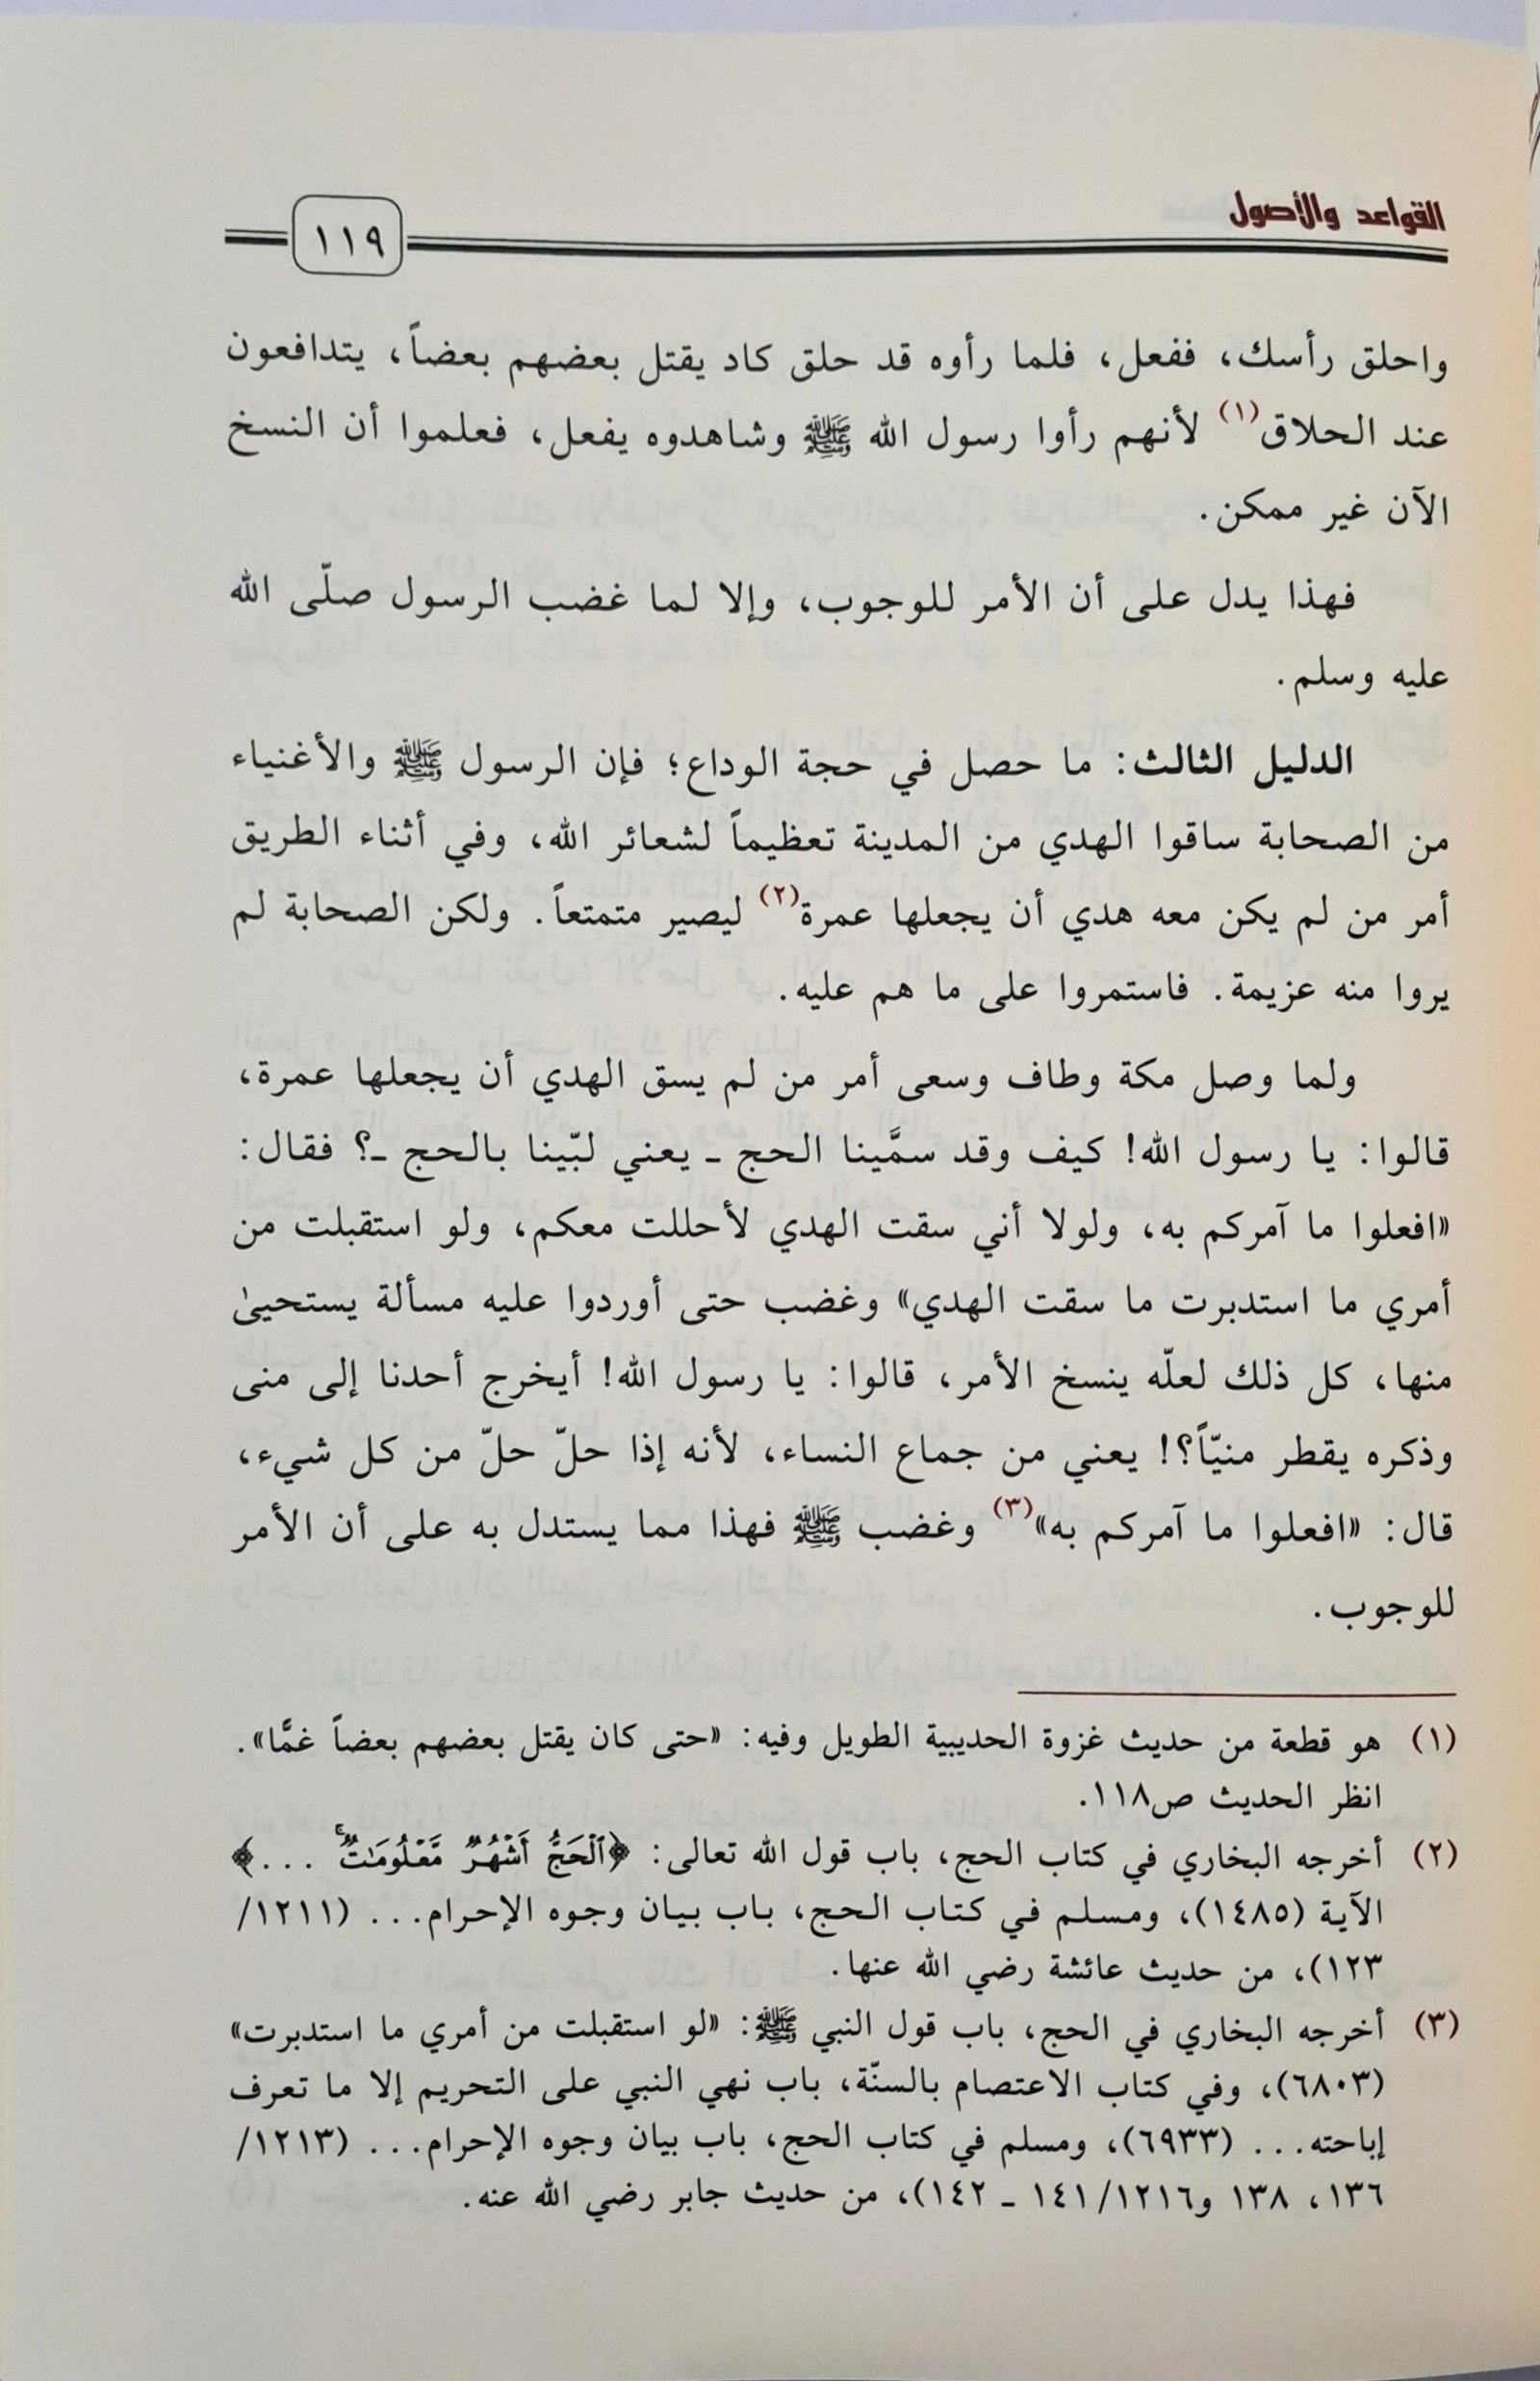 القواعد والأصول
١١٩
واحلق رأسك، ففعل، فلما رأوه قد حلق كاد يقتل بعضهم بعضاً، يتدافعون
عند الحلاق(١) لأنهم رأوا رسول الله ﷺ وشاهدوه يفعل، فعلموا أن النسخ
الآن غير ممكن.
فهذا يدل على أن الأمر للوجوب، وإلا لما غضب الرسول صلّى الله
عليه وسلم.
الدليل الثالث: ما حصل في حجة الوداع؛ فإن الرسول ﷺ والأغنياء
من الصحابة ساقوا الهدي من المدينة تعظيماً لشعائر الله، وفي أثناء الطريق
أمر من لم يكن معه هدي أن يجعلها عمرة(٢) ليصير متمتعاً. ولكن الصحابة لم
يروا منه عزيمة. فاستمروا على ما هم عليه.
ولما وصل مكة وطاف وسعى أمر من لم يسق الهدي أن يجعلها عمرة،
قالوا: يا رسول الله! كيف وقد سمَّينا الحج ـ يعني لبّينا بالحج ـ؟ فقال:
«افعلوا ما آمركم به، ولولا أني سقت الهدي لأحللت معكم، ولو استقبلت من
أمري ما استدبرت ما سقت الهدي» وغضب حتى أوردوا عليه مسألة يستحيىٰ
منها، كل ذلك لعلّه ينسخ الأمر، قالوا: يا رسول الله! أيخرج أحدنا إلى منى
وذكره يقطر منيّاً؟! يعني من جماع النساء، لأنه إذا حلّ حلّ من كل شيء،
قال: «افعلوا ما آمركم به»(٣) وغضب ﷺ فهذا مما يستدل به على أن الأمر
للوجوب.
(١) هو قطعة من حديث غزوة الحديبية الطويل وفيه: «حتى كان يقتل بعضهم بعضاً غمًّا».
انظر الحديث ص١١٨.
(٢) أخرجه البخاري في كتاب الحج، باب قول الله تعالى: ﴿ٱلْحَجُّ أَشْهُرٌ مَّعْلُومَٰتٌۚ ...﴾
الآية (١٤٨٥)، ومسلم في كتاب الحج، باب بيان وجوه الإحرام... (١٢١١/
١٢٣)، من حديث عائشة رضي الله عنها.
(٣) أخرجه البخاري في الحج، باب قول النبي ﷺ: «لو استقبلت من أمري ما استدبرت»
(٦٨٠٣)، وفي كتاب الاعتصام بالسنّة، باب نهي النبي على التحريم إلا ما تعرف
إباحته... (٦٩٣٣)، ومسلم في كتاب الحج، باب بيان وجوه الإحرام... (١٢١٣/
١٣٦، ١٣٨ و١٢١٦/١٤١ ـ ١٤٢)، من حديث جابر رضي الله عنه.